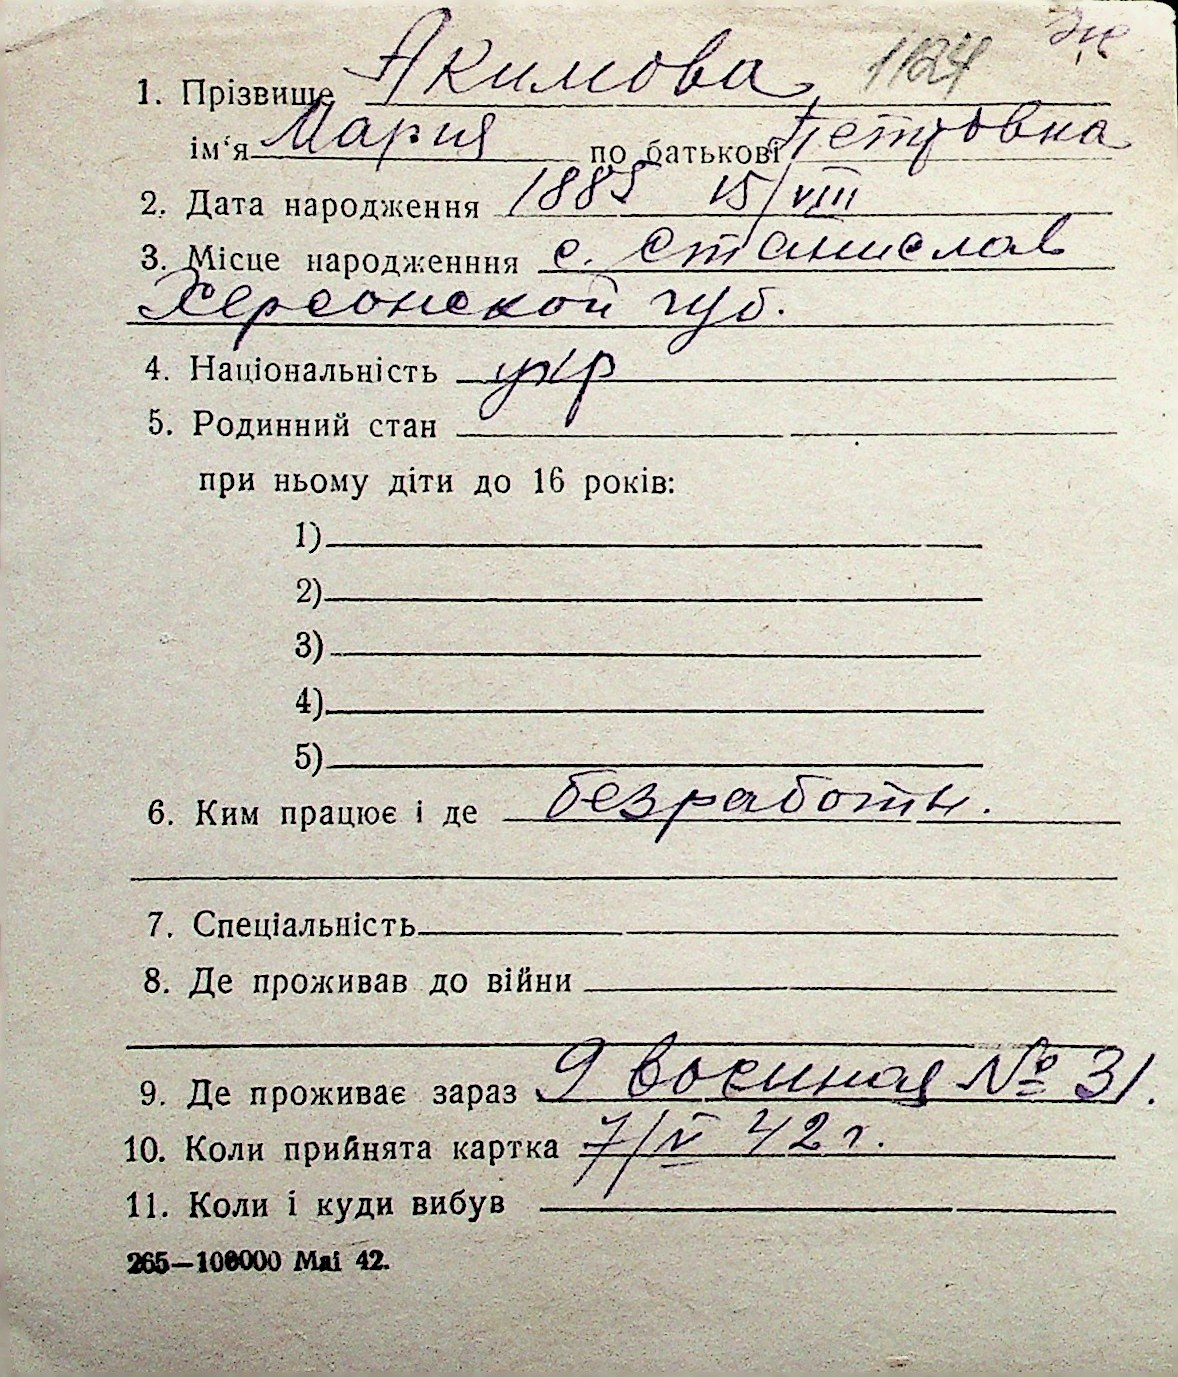 Эк.
1. Прізвище Акимова 1124
ім'я Мария по батькові Петровна
2. Дата народження 1885 15/VIII
3. Місце народженння с. Станислав
Херсонской губ.
4. Національність укр
5. Родинний стан
при ньому діти до 16 років:
1)
2)
3)
4)
5)
6. Ким працює і де безработн.
7. Спеціальність
8. Де проживав до війни
9. Де проживає зараз 9 военная № 31.
10. Коли прийнята картка 7/V 42 г.
11. Коли і куди вибув
265—100000 Mai 42.